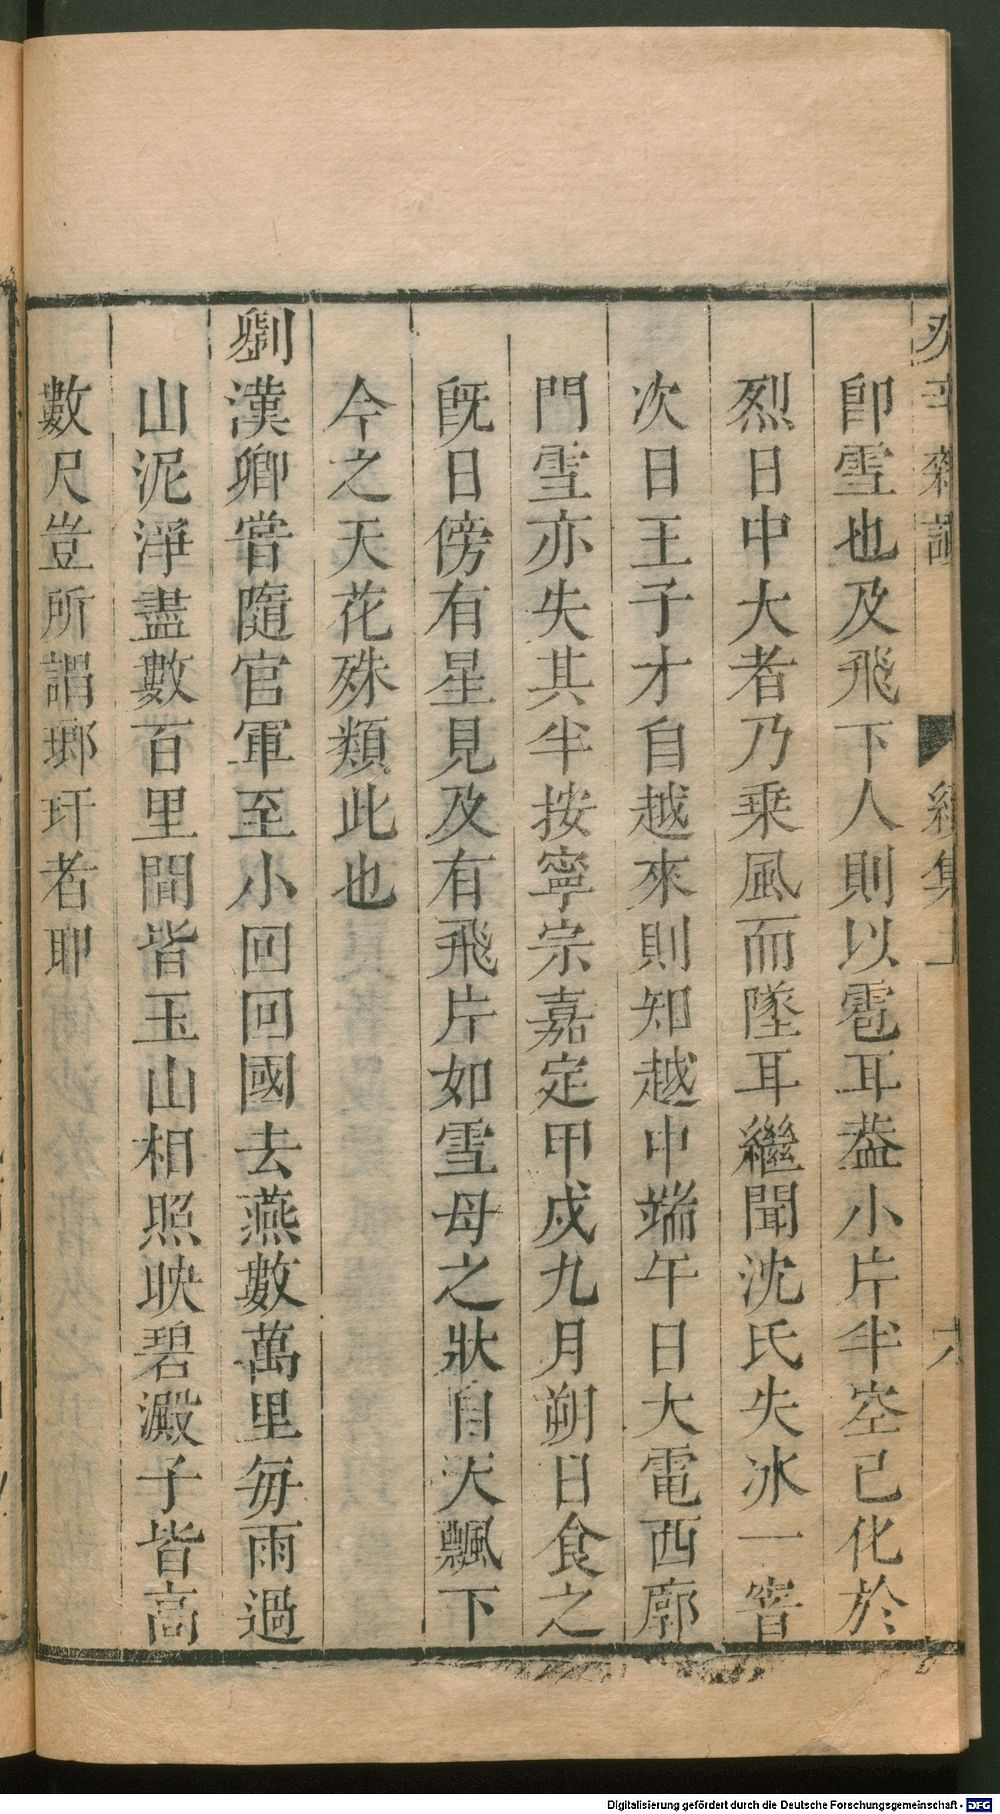 癸辛雜識 續集上 六
卽雪也及飛下人則以雹耳葢小片半空已化於
烈日中大者乃乘風而墜耳繼聞沈氏失冰一窖
次日王子才自越來則知越中端午日大電西廓
門雪亦失其半按寧宗嘉定甲戍九月朔日食之
旣日傍有星見及有飛片如雪母之狀自天飄下
今之天花殊類此也
劉漢卿嘗隨官軍至小回回國去燕數萬里每雨過
山泥淨盡數百里間皆玉山相照映碧澱子皆高
數尺豈所謂瑯玕者耶
Digitalisierung gefördert durch die Deutsche Forschungsgemeinschaft - DFG